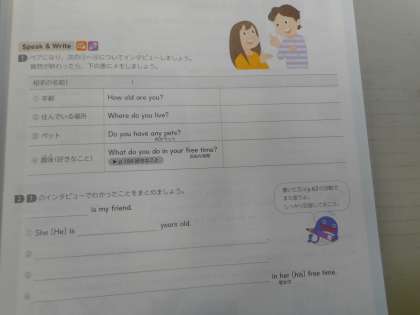 Speak & Write
1 ペアになり、次の①～④についてインタビューしましょう。
質問が終わったら、下の表にメモしましょう。
相手の名前( )
① 年齢 How old are you?
② 住んでいる場所 Where do you live?
③ ペット Do you have any pets?
④ 趣味(好きなこと) What do you do in your free time?
▶ p.154 好きなこと
2 1 のインタビューでわかったことをまとめましょう。
is my friend.
① She [He] is years old.
②
③
④ in her [his] free time.